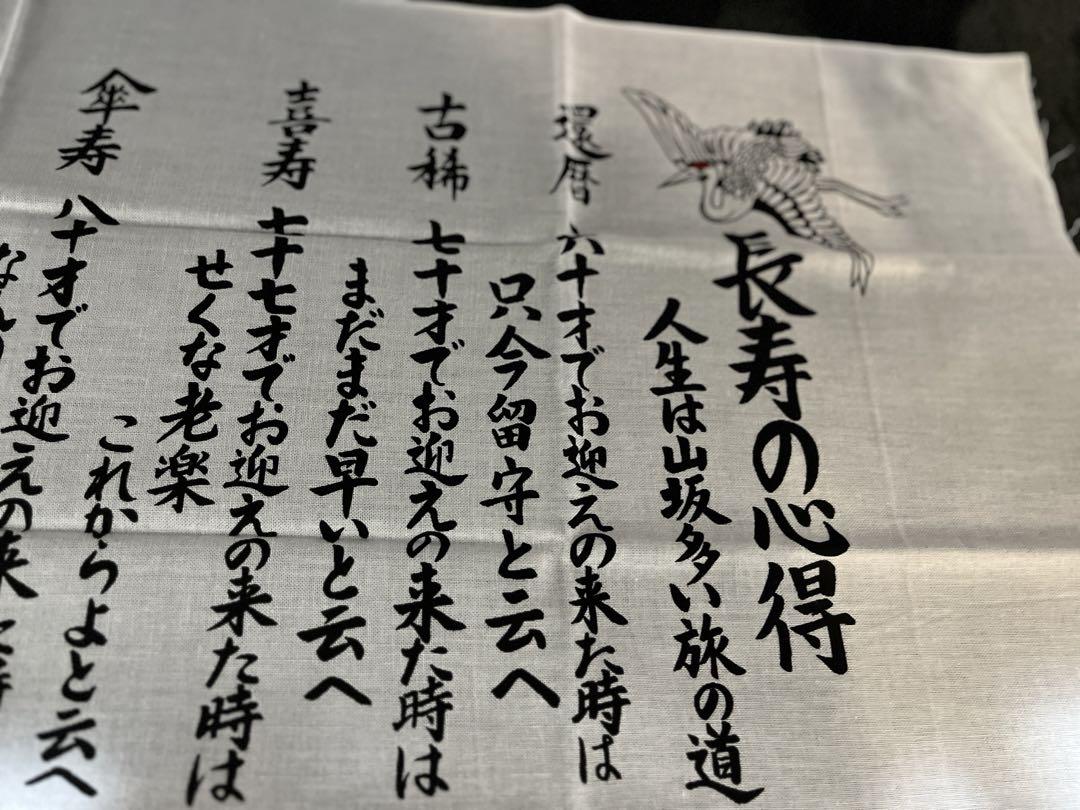 長寿の心得
人生は山坂多い旅の道
還暦 六十才でお迎えの来た時は
只今留守と云へ
古稀 七十才でお迎えの来た時は
まだまだ早いと云へ
喜寿 七十七才でお迎えの来た時は
せくな老楽
これからよと云へ
傘寿 八十才でお迎えの来た時